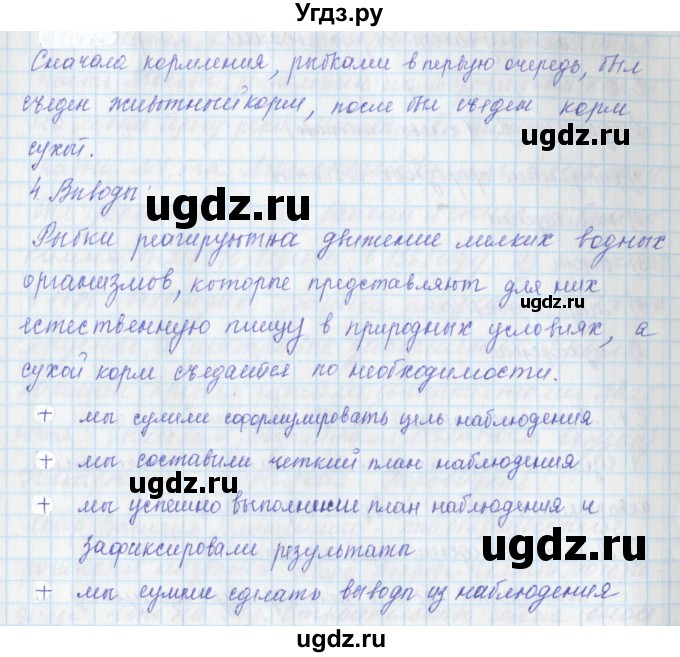 Угдз.ру
Сначала кормления, рыбками в первую очередь, был
съеден животный корм, после был съеден корм
сухой.
ugdz.ru
4. Выводы:
ugdz.ru
Рыбки реагируют на движение мелких водных
организмов, которые представляют для них
ugdz.ru
естественную пищу в природных условиях, а
сухой корм съедается по необходимости.
+ мы сумели сформулировать цель наблюдения
+ мы составили четкий план наблюдения
ugdz.ru
+ мы успешно выполнили план наблюдения и
зафиксировали результаты
ugdz.ru
+ мы сумели сделать выводы из наблюдения
ugdz.ru